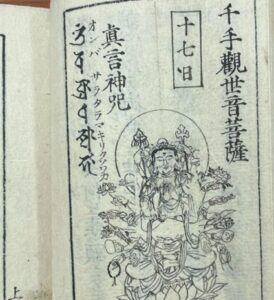 千手觀世音菩薩
十七日
眞言神咒
オンバサラタラマキリクソワカ
上